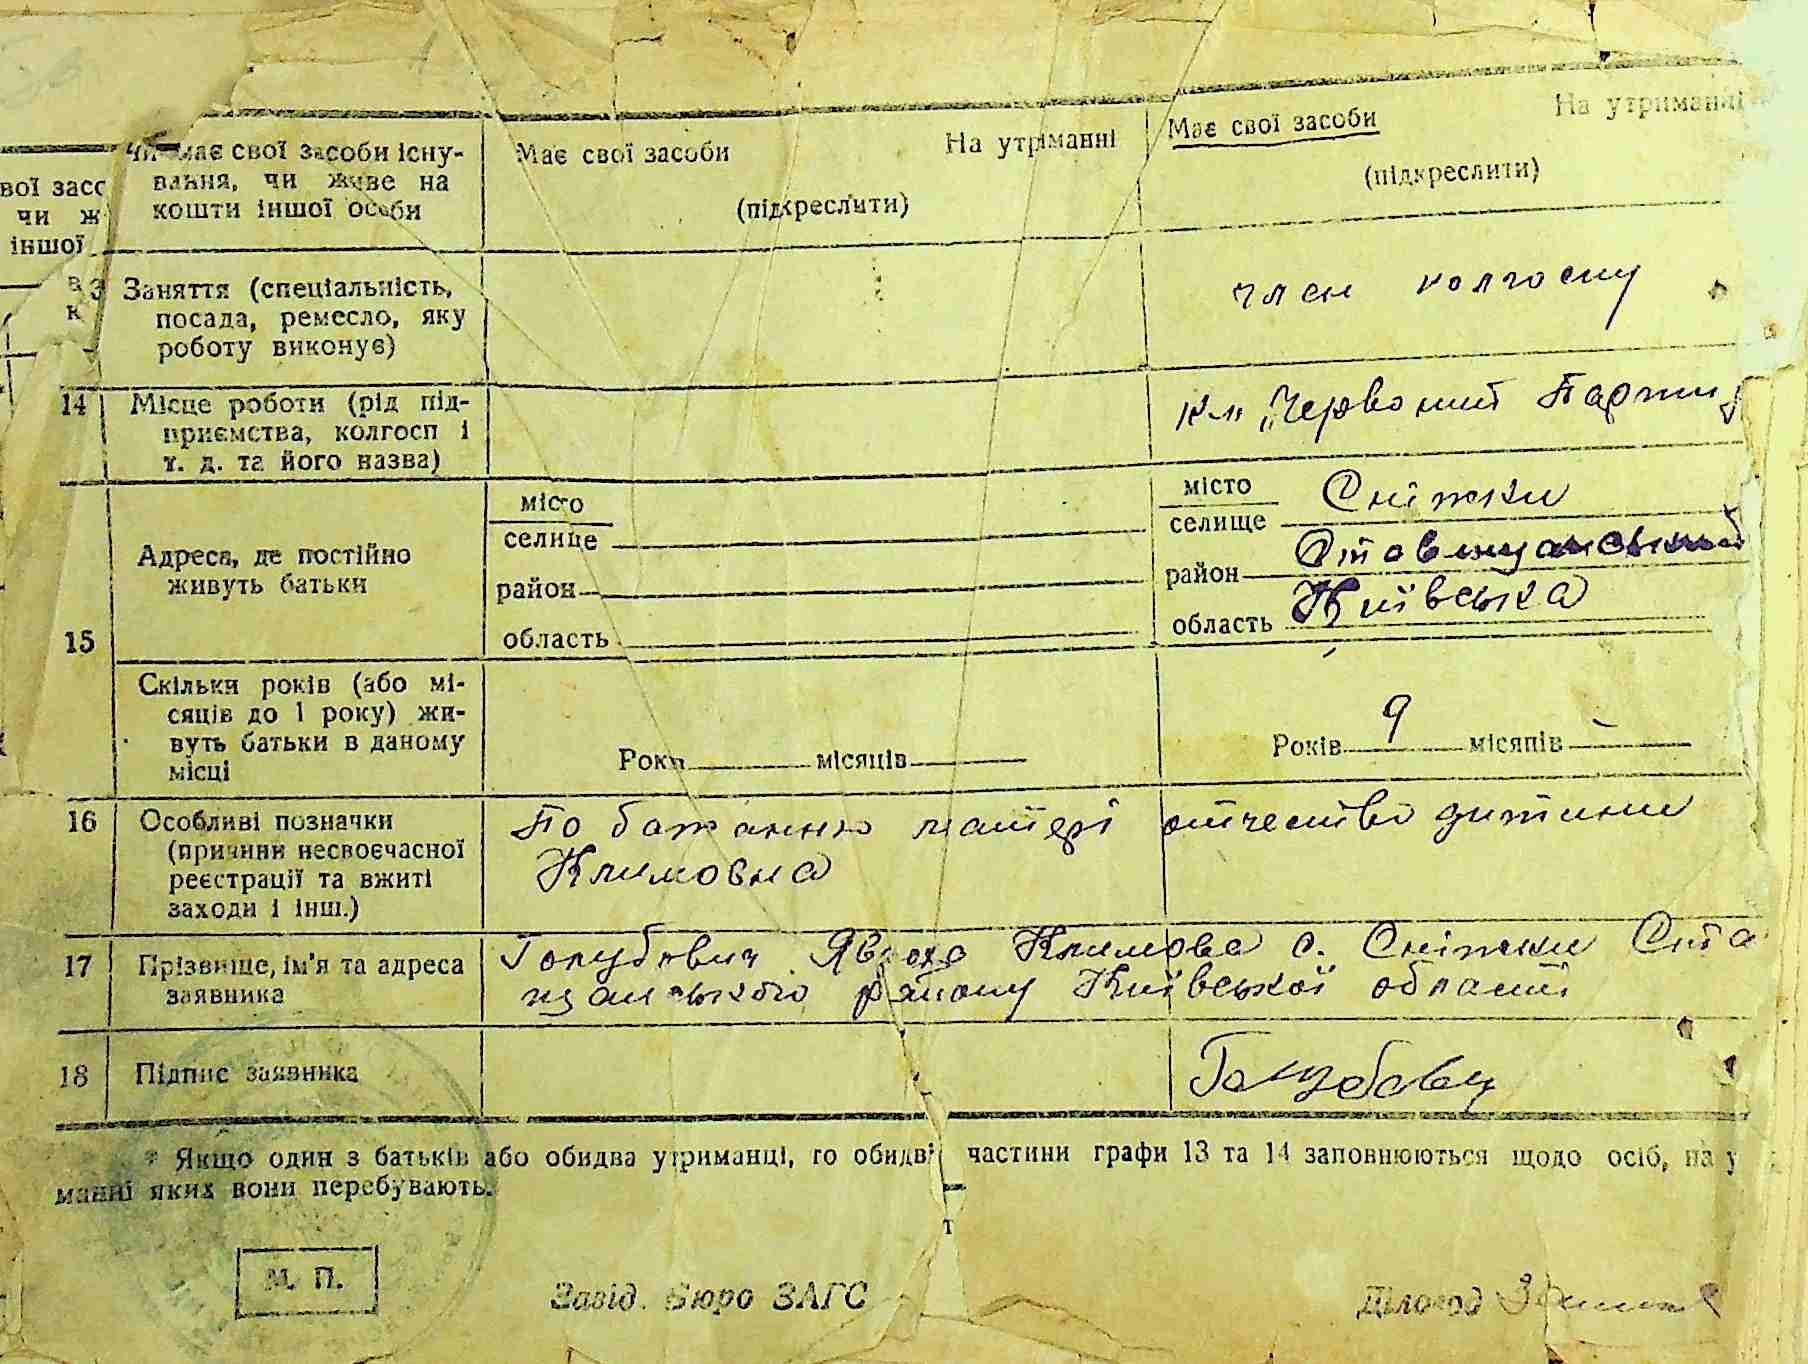 вої засо
чи ж
іншої
Чи має свої засоби існу-
вання, чи живе на
кошти іншої особи
Має свої засоби На утріманні
(підкреслити)
Має свої засоби На утриманні
(підкреслити)
3 Заняття (спеціальність,
посада, ремесло, яку
роботу виконує)
член колгоспу
14 Місце роботи (рід під-
приємства, колгосп і
т. д. та його назва)
к-п „Червоний Партиз
15
Адреса, де постійно
живуть батьки
місто
селище
район
область
місто Сніжки
селище
район Ставищанський
область Київська
Скільки років (або мі-
сяців до 1 року) жи-
вуть батьки в даному
місці
Років місяців
Років 9 місяців –
16 Особливі позначки
(причини несвоєчасної
реєстрації та вжиті
заходи і інш.)
По бажанню матері отчество дитини
Климовна
17 Прізвище, ім'я та адреса
заявника
Голубович Климова с. Сніжки Ста
щанського району Київської області
18 Підпис заявника
* Якщо один з батьків або обидва утриманці, то обидві частини графи 13 та 14 заповнюються щодо осіб, на у
манні яких вони перебувають.
М. П.
Завід. Бюро ЗАГС
Діловод